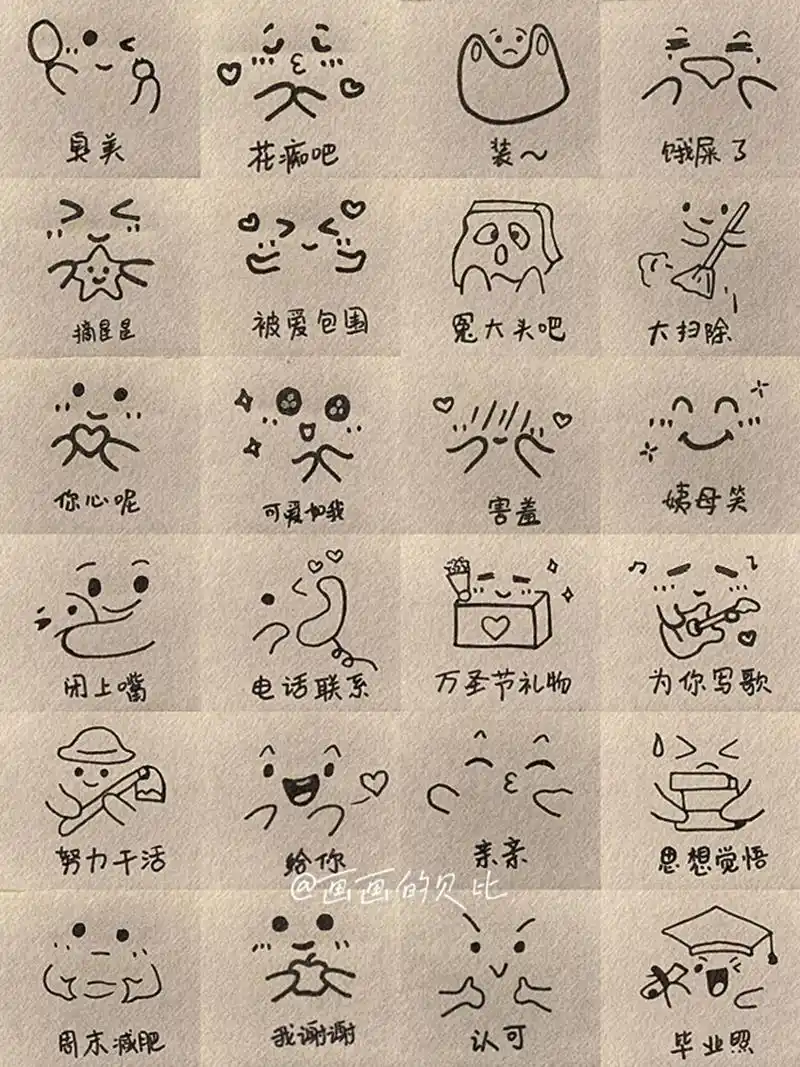 臭美
花痴吧
装～
饿屎了
摘星星
被爱包围
冤大头吧
大扫除
你心呢
可爱如我
害羞
姨母笑
闭上嘴
电话联系
万圣节礼物
为你写歌
努力干活
给你
亲亲
思想觉悟
@画画的贝比
周末减肥
我谢谢
认可
毕业照